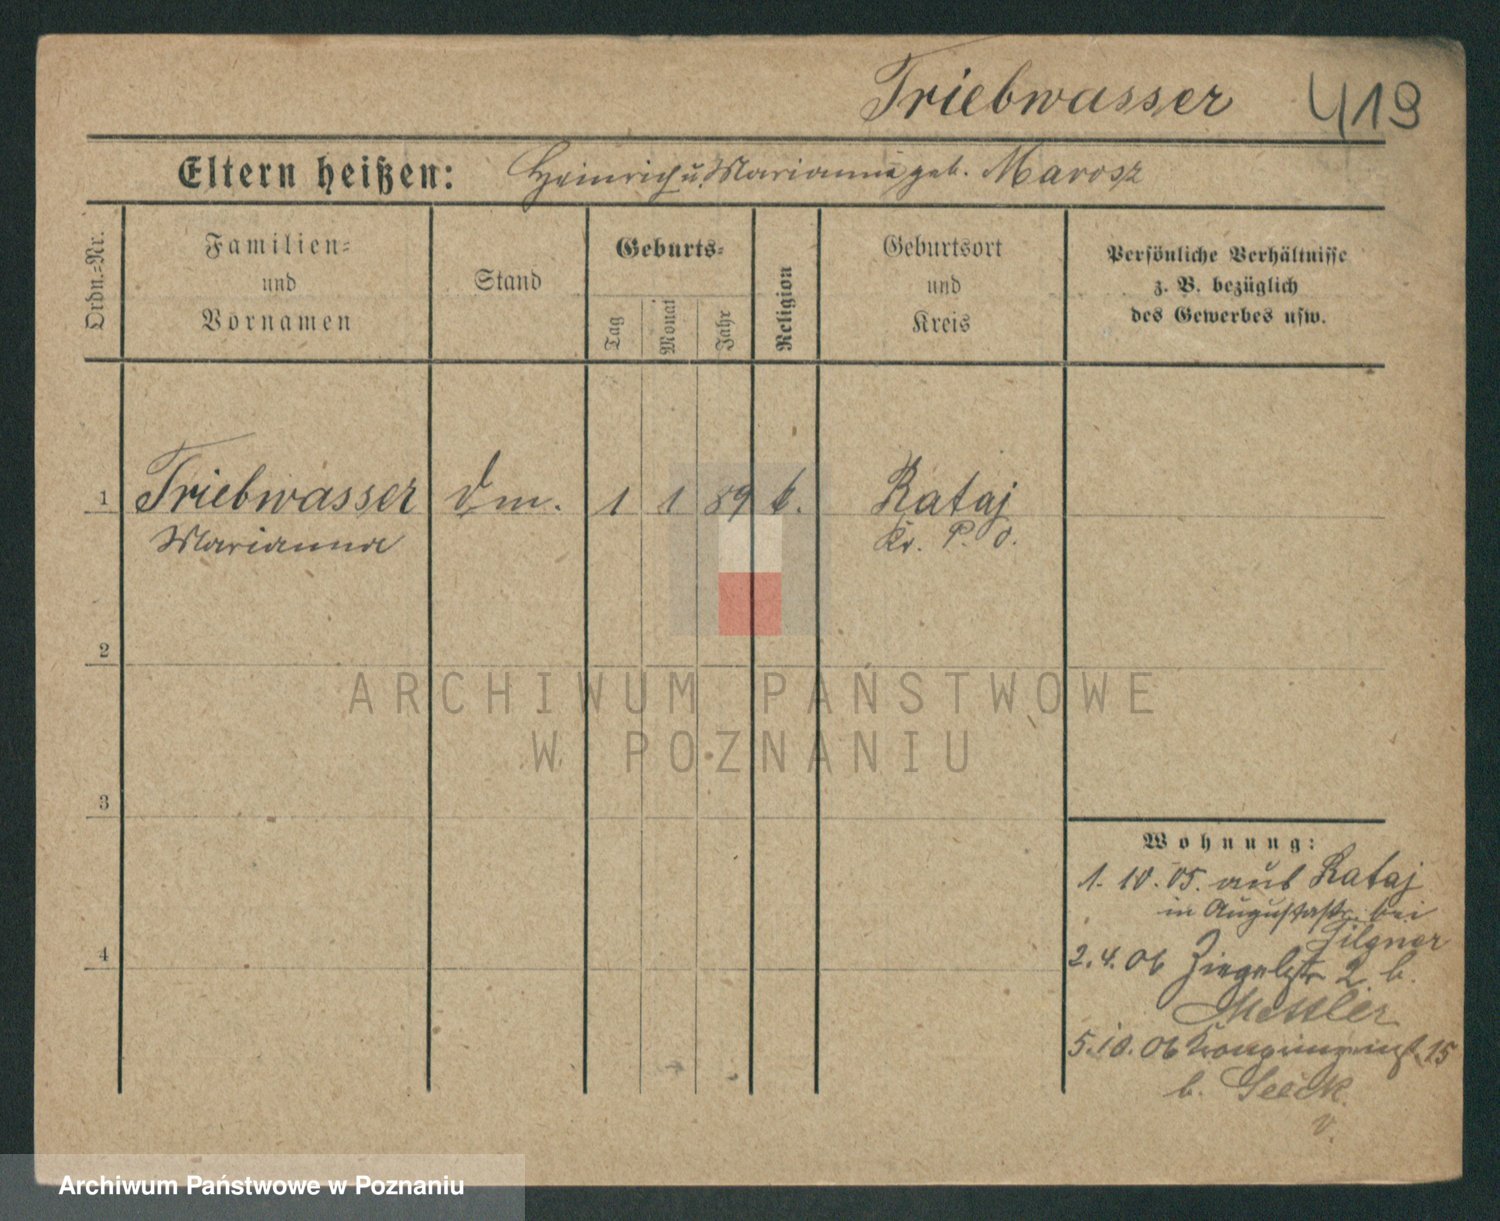 Triebwasser 419
Eltern heißen: Heinrich u. Marianna geb. Marosz
Ordn.-Nr.
Familien-
und
Vornamen
Stand
Geburts-
Tag
Monat
Jahr
Religion
Geburtsort
und
Kreis
Persönliche Verhältnisse
z. B. bezüglich
des Gewerbes usw.
1 Triebwasser Dm. 1 1 89 k. Rataj
Marianna Kr. P. O.
2
ARCHIWUM PAŃSTWOWE
W POZNANIU
3
Wohnung:
1. 10. 05. aus Rataj
in Augustastr. bei
Filgner
4
2. 4. 06 Ziegelstr 2 b.
Mettler
5. 10. 06 Kronprinzenst. 15
b. Geeck
Archiwum Państwowe w Poznaniu